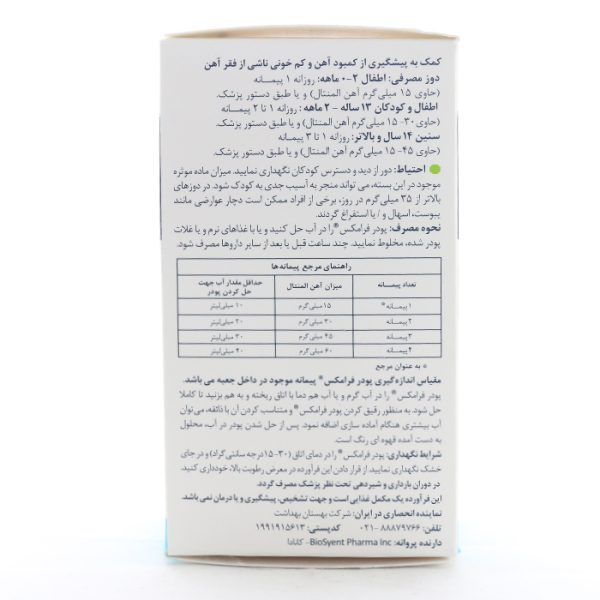 کمک به پیشگیری از کمبود آهن و کم خونی ناشی از فقر آهن
دوز مصرفی: اطفال ۲-۰ ماهه: روزانه ۱ پیمانه
(حاوی ۱۵ میلی گرم آهن المنتال) و یا طبق دستور پزشک.
اطفال و کودکان ۱۳ ساله - ۲ ماهه : روزانه ۱ تا ۲ پیمانه
(حاوی ۳۰-۱۵ میلی گرم آهن المنتال) و یا طبق دستور پزشک.
سنین ۱۴ سال و بالاتر: روزانه ۱ تا ۳ پیمانه
(حاوی ۴۵-۱۵ میلی گرم آهن المنتال) و یا طبق دستور پزشک.
احتیاط: دور از دید و دسترس کودکان نگهداری نمایید. میزان ماده موثره
موجود در این بسته، می تواند منجر به آسیب جدی به کودک شود. در دوزهای
بالاتر از ۳۵ میلی گرم در روز، برخی از افراد ممکن است دچار عوارضی مانند
یبوست، اسهال و / یا استفراغ گردند.
نحوه مصرف: پودر فرامکس® را در آب حل کنید و یا با غذاهای نرم و یا غلات
پودر شده، مخلوط نمایید. چند ساعت قبل یا بعد از سایر داروها مصرف شود.
راهنمای مرجع پیمانه‌ها
تعداد پیمانه میزان آهن المنتال حداقل مقدار آب جهت حل کردن پودر
۱ پیمانه* ۱۵ میلی گرم ۱۰ میلی‌لیتر
۲ پیمانه ۳۰ میلی گرم ۲۰ میلی‌لیتر
۳ پیمانه ۴۵ میلی گرم ۳۰ میلی‌لیتر
۴ پیمانه ۶۰ میلی گرم ۴۰ میلی‌لیتر
* به عنوان مرجع
مقیاس اندازه گیری پودر فرامکس® پیمانه موجود در داخل جعبه می باشد.
پودر فرامکس® را در آب گرم و یا آب هم دما با اتاق ریخته و به هم بزنید تا کاملا
حل شود. به منظور رقیق کردن پودر فرامکس® و متناسب کردن آن با ذائقه، می‌توان
آب بیشتری هنگام آماده سازی اضافه نمود. پس از حل شدن پودر در آب، محلول
به دست آمده قهوه ای رنگ است.
شرایط نگهداری: پودر فرامکس® را در دمای اتاق (۳۰-۱۵ درجه سانتی گراد) و در جای
خشک نگهداری نمایید. از قرار دادن این فرآورده در معرض رطوبت بالا، خودداری کنید.
در دوران بارداری و شیردهی تحت نظر پزشک مصرف گردد.
این فرآورده یک مکمل غذایی است و جهت تشخیص، پیشگیری و یا درمان نمی باشد.
نماینده انحصاری در ایران: شرکت بهستان بهداشت
تلفن: ۸۸۸۷۹۷۶۶ -۰۲۱ کدپستی: ۱۹۹۱۹۱۵۶۱۳
دارنده پروانه: BioSyent Pharma Inc - کانادا